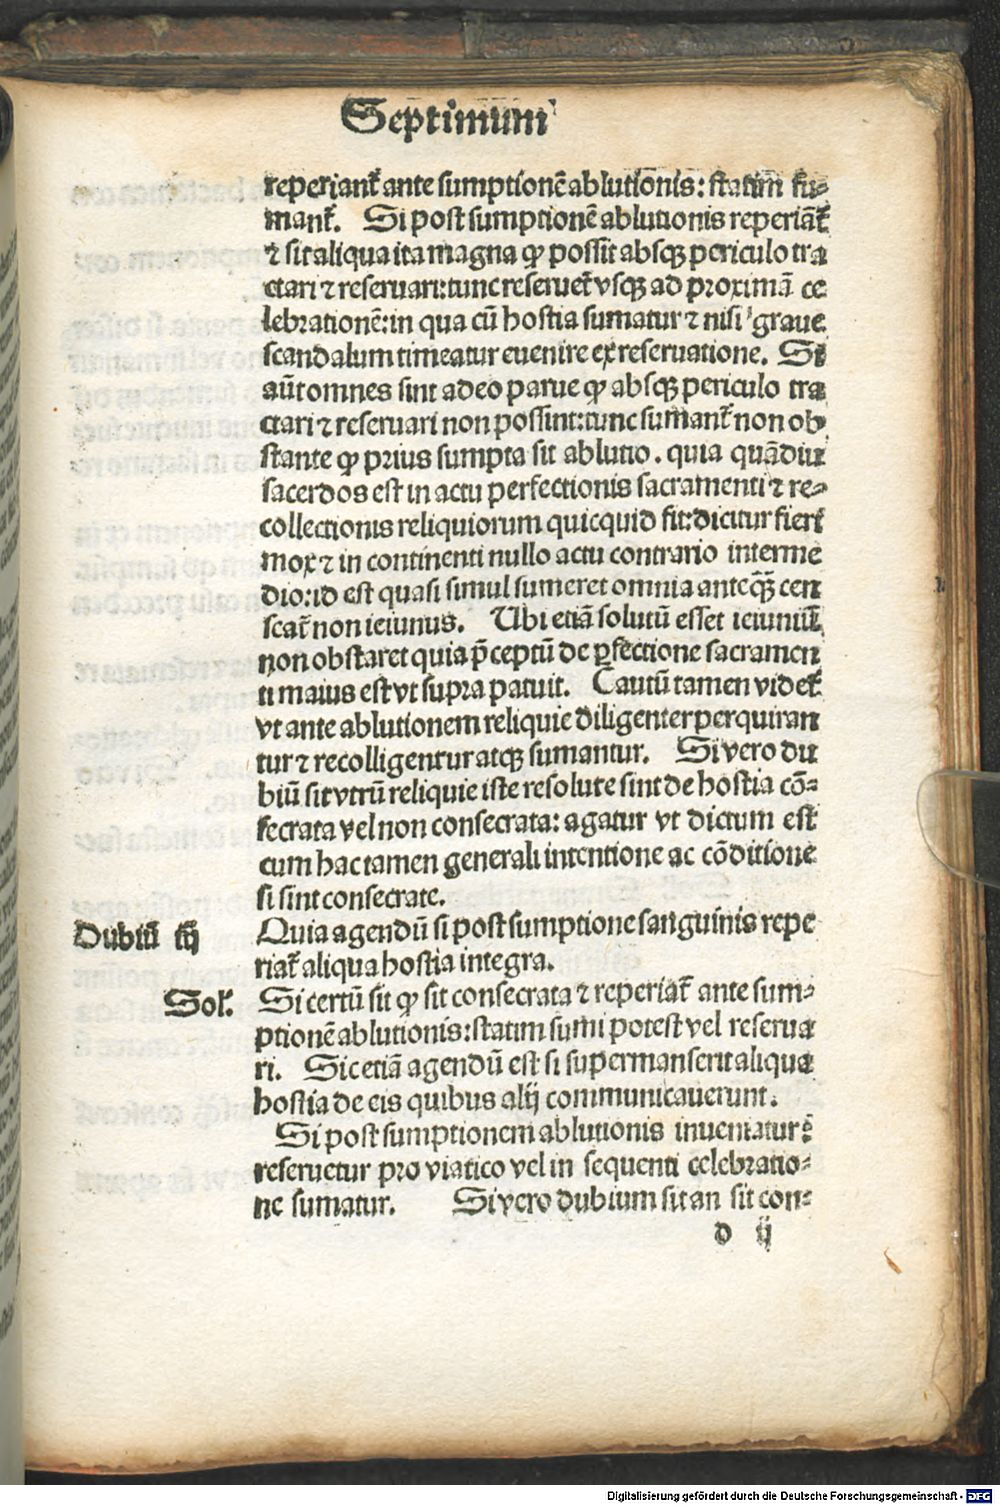 Septimum
reperiant᷑ ante sumptionē ablutionis: statim su⸗
mant᷑. Si post sumptionē ablutionis reperiāt᷑
⁊ sit aliqua ita magna ꝙ possit absqꝫ periculo tra
ctari ⁊ reseruari: tunc reseruet᷑ vsqꝫ ad proximā ce
lebrationē: in qua cū hostia sumatur ⁊ nisi graue
scandalum timeatur euenire ex reseruatione. Si
aūt omnes sint adeo parue ꝙ absqꝫ periculo tra
ctari ⁊ reseruari non possint: tunc sumant᷑ non ob
stante ꝙ prius sumpta sit ablutio. quia quādiu
sacerdos est in actu perfectionis sacramenti ⁊ re⸗
collectionis reliquiorum quicquid fit: dicitur fieri
mox ⁊ in continenti nullo actu contrario interme
dio: id est quasi simul sumeret omnia anteqꝫ̄ cen
scat᷑ non ieiunus. Ubi etiā solutū esset ieiuniū
non obstaret quia p̄ceptū de ꝑfectione sacramen
ti maius est vt supra patuit. Cautū tamen videt᷑
vt ante ablutionem reliquie diligenter perquiran
tur ⁊ recolligentur atqꝫ sumantur. Si vero du
biū sit vtrū reliquie iste resolute sint de hostia cō⸗
secrata vel non consecrata: agatur vt dictum est
cum hac tamen generali intentione ac cōditione
si sint consecrate.
Dubiū iij Quia agendū si post sumptione sanguinis repe
riat᷑ aliqua hostia integra.
Sol᷑. Si certū sit ꝙ sit consecrata ⁊ reperiat᷑ ante sum⸗
ptionē ablutionis: statim sumi potest vel reserua
ri. Sic etiā agendū est si supermanserit aliqua
hostia de eis quibus alij communicauerunt.
Si post sumptionem ablutionis inueniatur:
reseruetur pro viatico vel in sequenti celebratio⸗
ne sumatur. Si vero dubium sit an sit con⸗
d ij
Digitalisierung gefördert durch die Deutsche Forschungsgemeinschaft - DFG